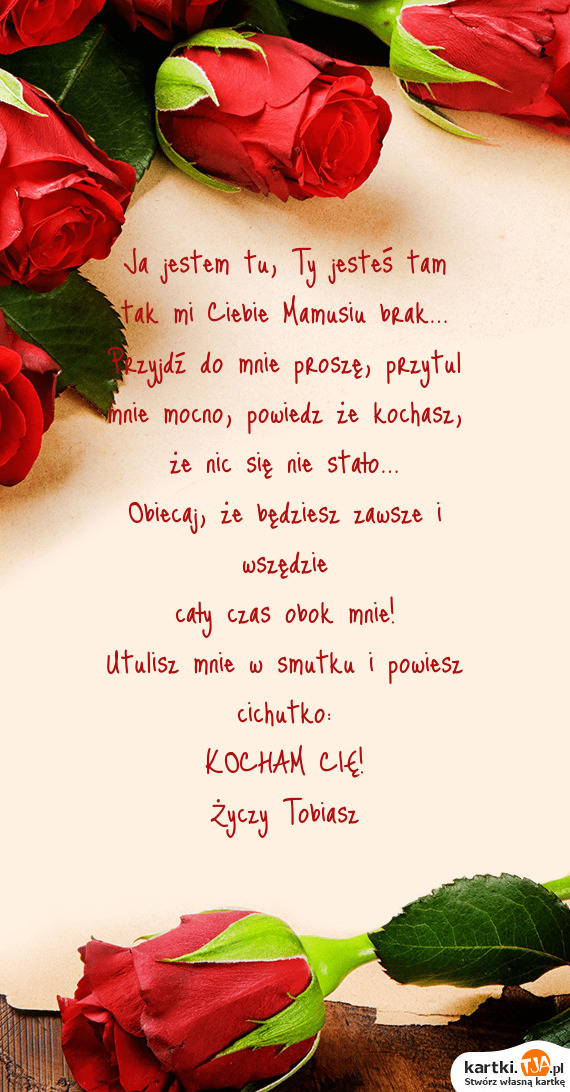 Ja jestem tu, Ty jesteś tam
tak mi Ciebie Mamusiu brak...
Przyjdź do mnie proszę, przytul
mnie mocno, powiedz że kochasz,
że nic się nie stało...
Obiecaj, że będziesz zawsze i
wszędzie
cały czas obok mnie!
Utulisz mnie w smutku i powiesz
cichutko:
KOCHAM CIĘ!
Życzy Tobiasz
kartki.TJA.pl
Stwórz własną kartkę